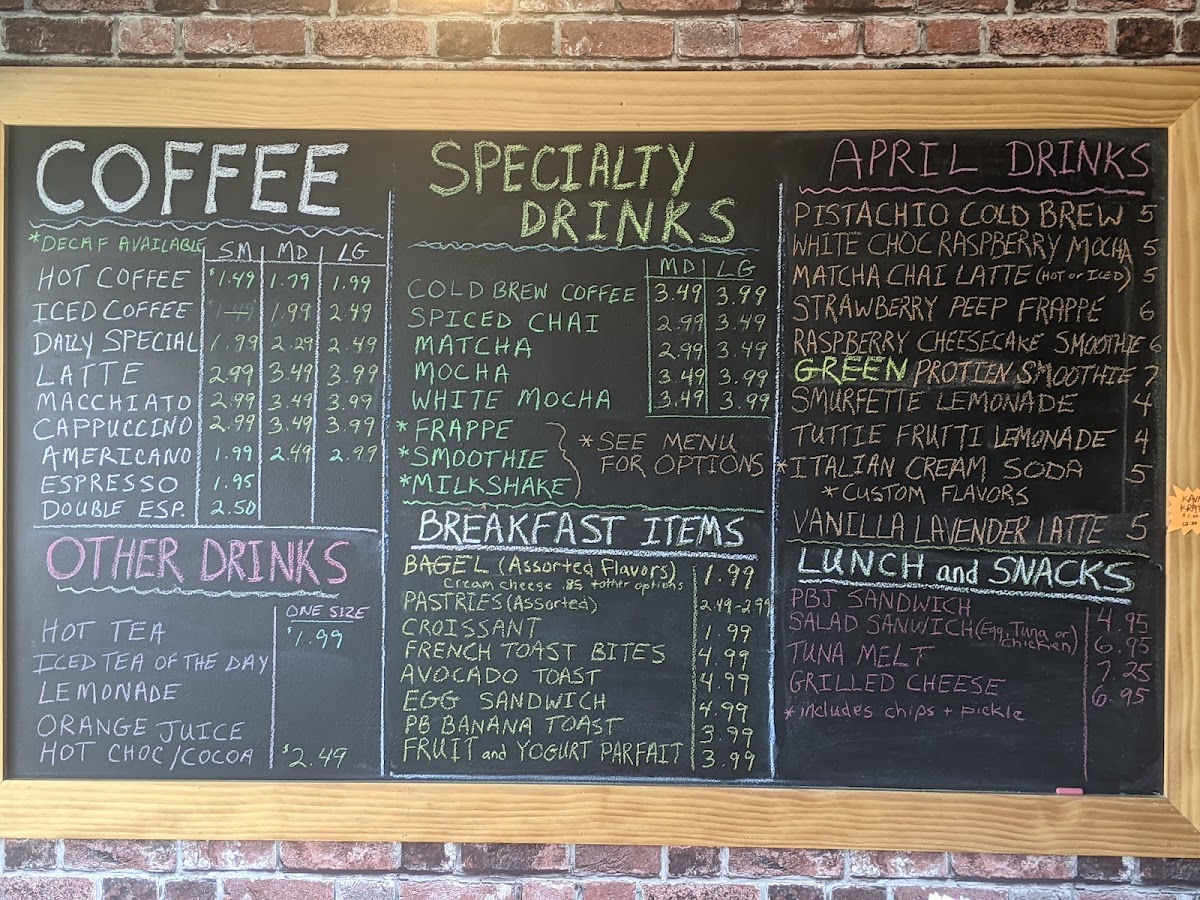 COFFEE
*DECAF AVAILABLE SM MD LG
HOT COFFEE $1.49 1.79 1.99
ICED COFFEE 1.99 2.49
DAILY SPECIAL 1.99 2.29 2.49
LATTE 2.99 3.49 3.99
MACCHIATO 2.99 3.49 3.99
CAPPUCCINO 2.99 3.49 3.99
AMERICANO 1.99 2.49 2.99
ESPRESSO 1.95
DOUBLE ESP. 2.50
OTHER DRINKS
ONE SIZE
HOT TEA $1.99
ICED TEA OF THE DAY
LEMONADE
ORANGE JUICE
HOT CHOC/COCOA $2.49
SPECIALTY
DRINKS
MD LG
COLD BREW COFFEE 3.49 3.99
SPICED CHAI 2.99 3.49
MATCHA 2.99 3.49
MOCHA 3.49 3.99
WHITE MOCHA 3.49 3.99
*FRAPPE
*SMOOTHIE
*MILKSHAKE
*SEE MENU
FOR OPTIONS
BREAKFAST ITEMS
BAGEL (Assorted Flavors) 1.99
Cream cheese .85 + other options
PASTRIES (Assorted) 2.49-2.99
CROISSANT 1.99
FRENCH TOAST BITES 4.99
AVOCADO TOAST 4.99
EGG SANDWICH 4.99
PB BANANA TOAST 3.99
FRUIT and YOGURT PARFAIT 3.99
APRIL DRINKS
PISTACHIO COLD BREW 5
WHITE CHOC RASPBERRY MOCHA 5
MATCHA CHAI LATTE (HOT or ICED) 5
STRAWBERRY PEEP FRAPPÉ 6
RASPBERRY CHEESECAKE SMOOTHIE 6
GREEN PROTIEN SMOOTHIE 7
SMURFETTE LEMONADE 4
TUTTIE FRUTTI LEMONADE 4
*ITALIAN CREAM SODA 5
*CUSTOM FLAVORS
VANILLA LAVENDER LATTE 5
LUNCH and SNACKS
PBJ SANDWICH 4.95
SALAD SANWICH (Egg, Tuna or chicken) 6.95
TUNA MELT 7.25
GRILLED CHEESE 6.95
*includes chips + pickle